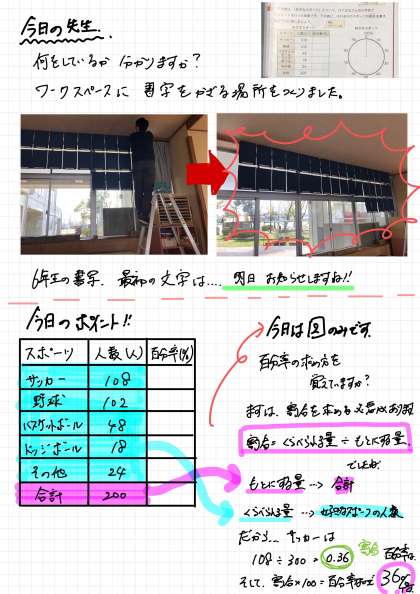 今日の先生
何をしているか 分かりますか？
ワークスペースに 書写をかざる場所をつくりました。
6年生の書写、最初の文字は.... 明日 お知らせしますね!!
今日のポイント!!
スポーツ 人数(人) 百分率(%)
サッカー 108
野球 102
バスケットボール 48
ドッジボール 18
その他 24
合計 200
今日は②のみです。
百分率の求め方を
覚えていますか？
まずは、割合を求める必要があるね
割合＝くらべられる量÷もとにする量
でしたね。
もとにする量 → 合計
くらべられる量 → 好きなスポーツの人数
だから... サッカーは
108÷300＝0.36 割合
そして、割合×100＝百分率なので 36%
百分率は、